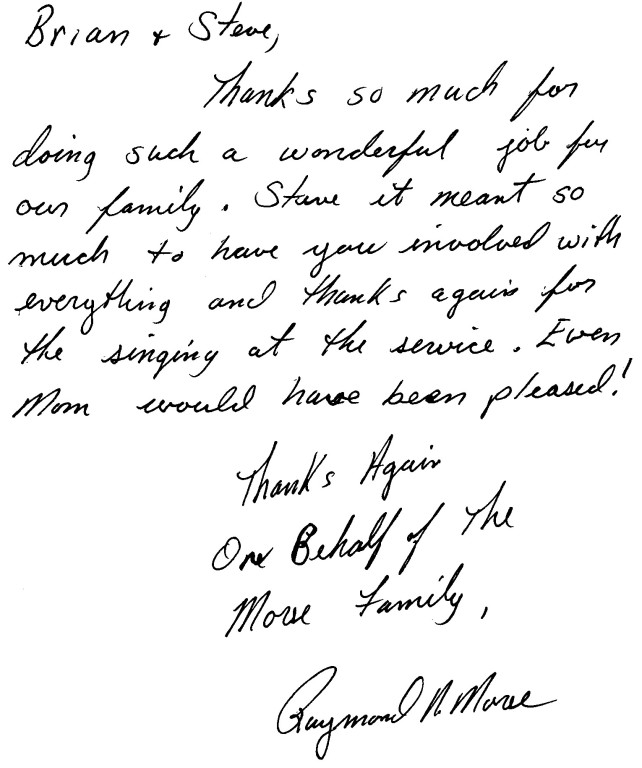 Brian + Steve,
Thanks so much for
doing such a wonderful job for
our family. Steve it meant so
much to have you involved with
everything and thanks again for
the singing at the service. Even
Mom would have been pleased!
Thanks Again
On Behalf of The
Morse Family,
Raymond N. Morse